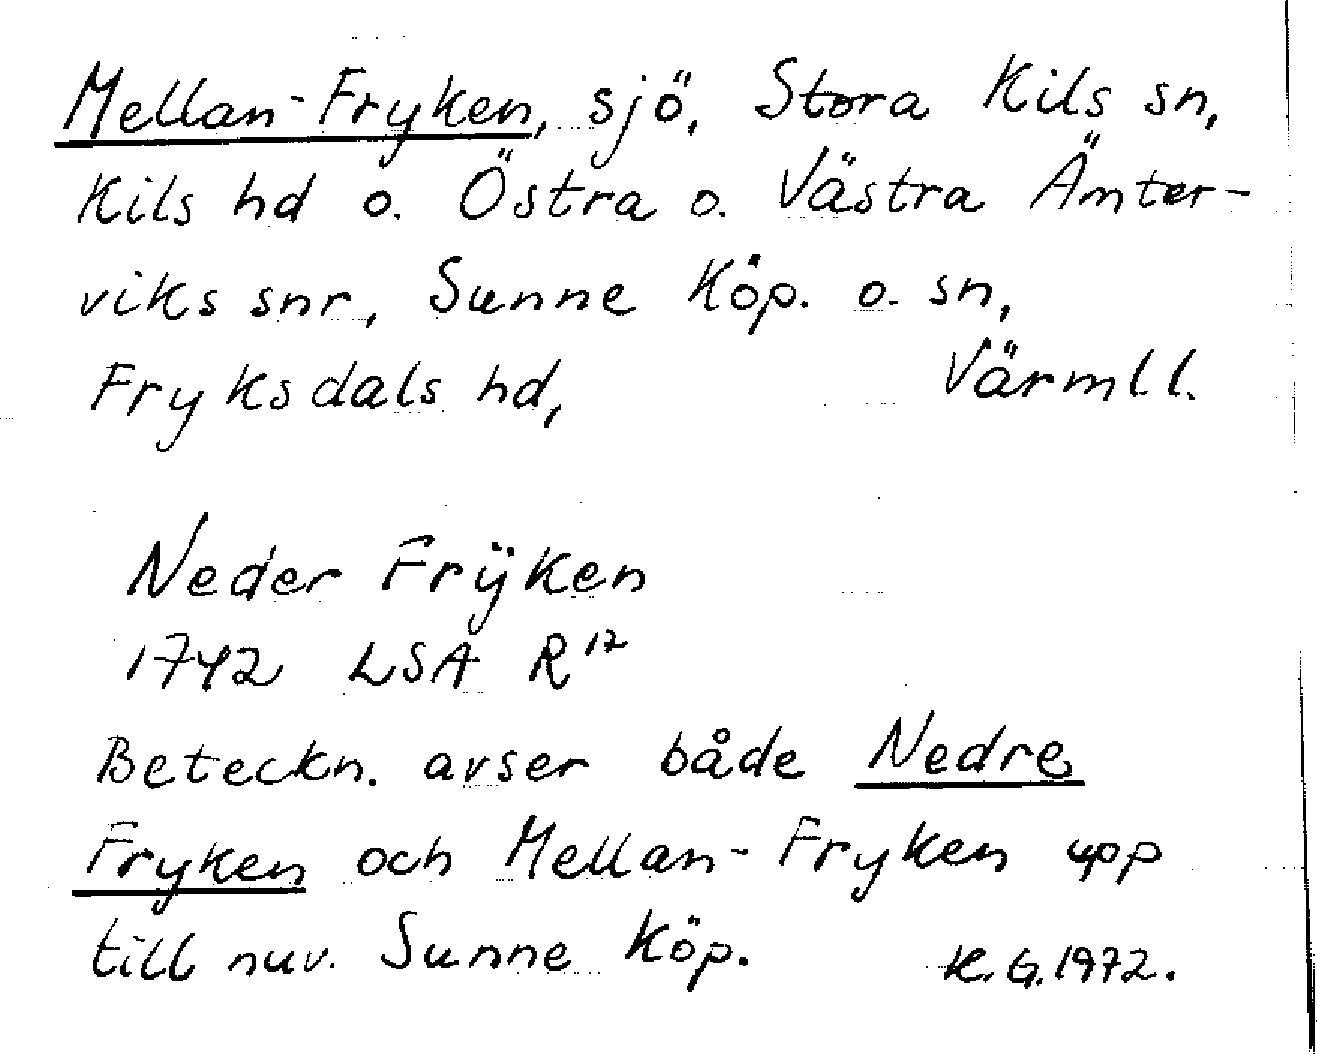 Mellan-Fryken, sjö, Stora Kils sn,
Kils hd o. Östra o. Västra Ämter-
viks snr, Sunne Köp. o. sn,
Fryksdals hd, Värmll.
Neder Frÿken
1742 LSA R¹²
Beteckn. avser både Nedre
Fryken och Mellan-Fryken upp
till nuv. Sunne Köp. K.G. 1972.